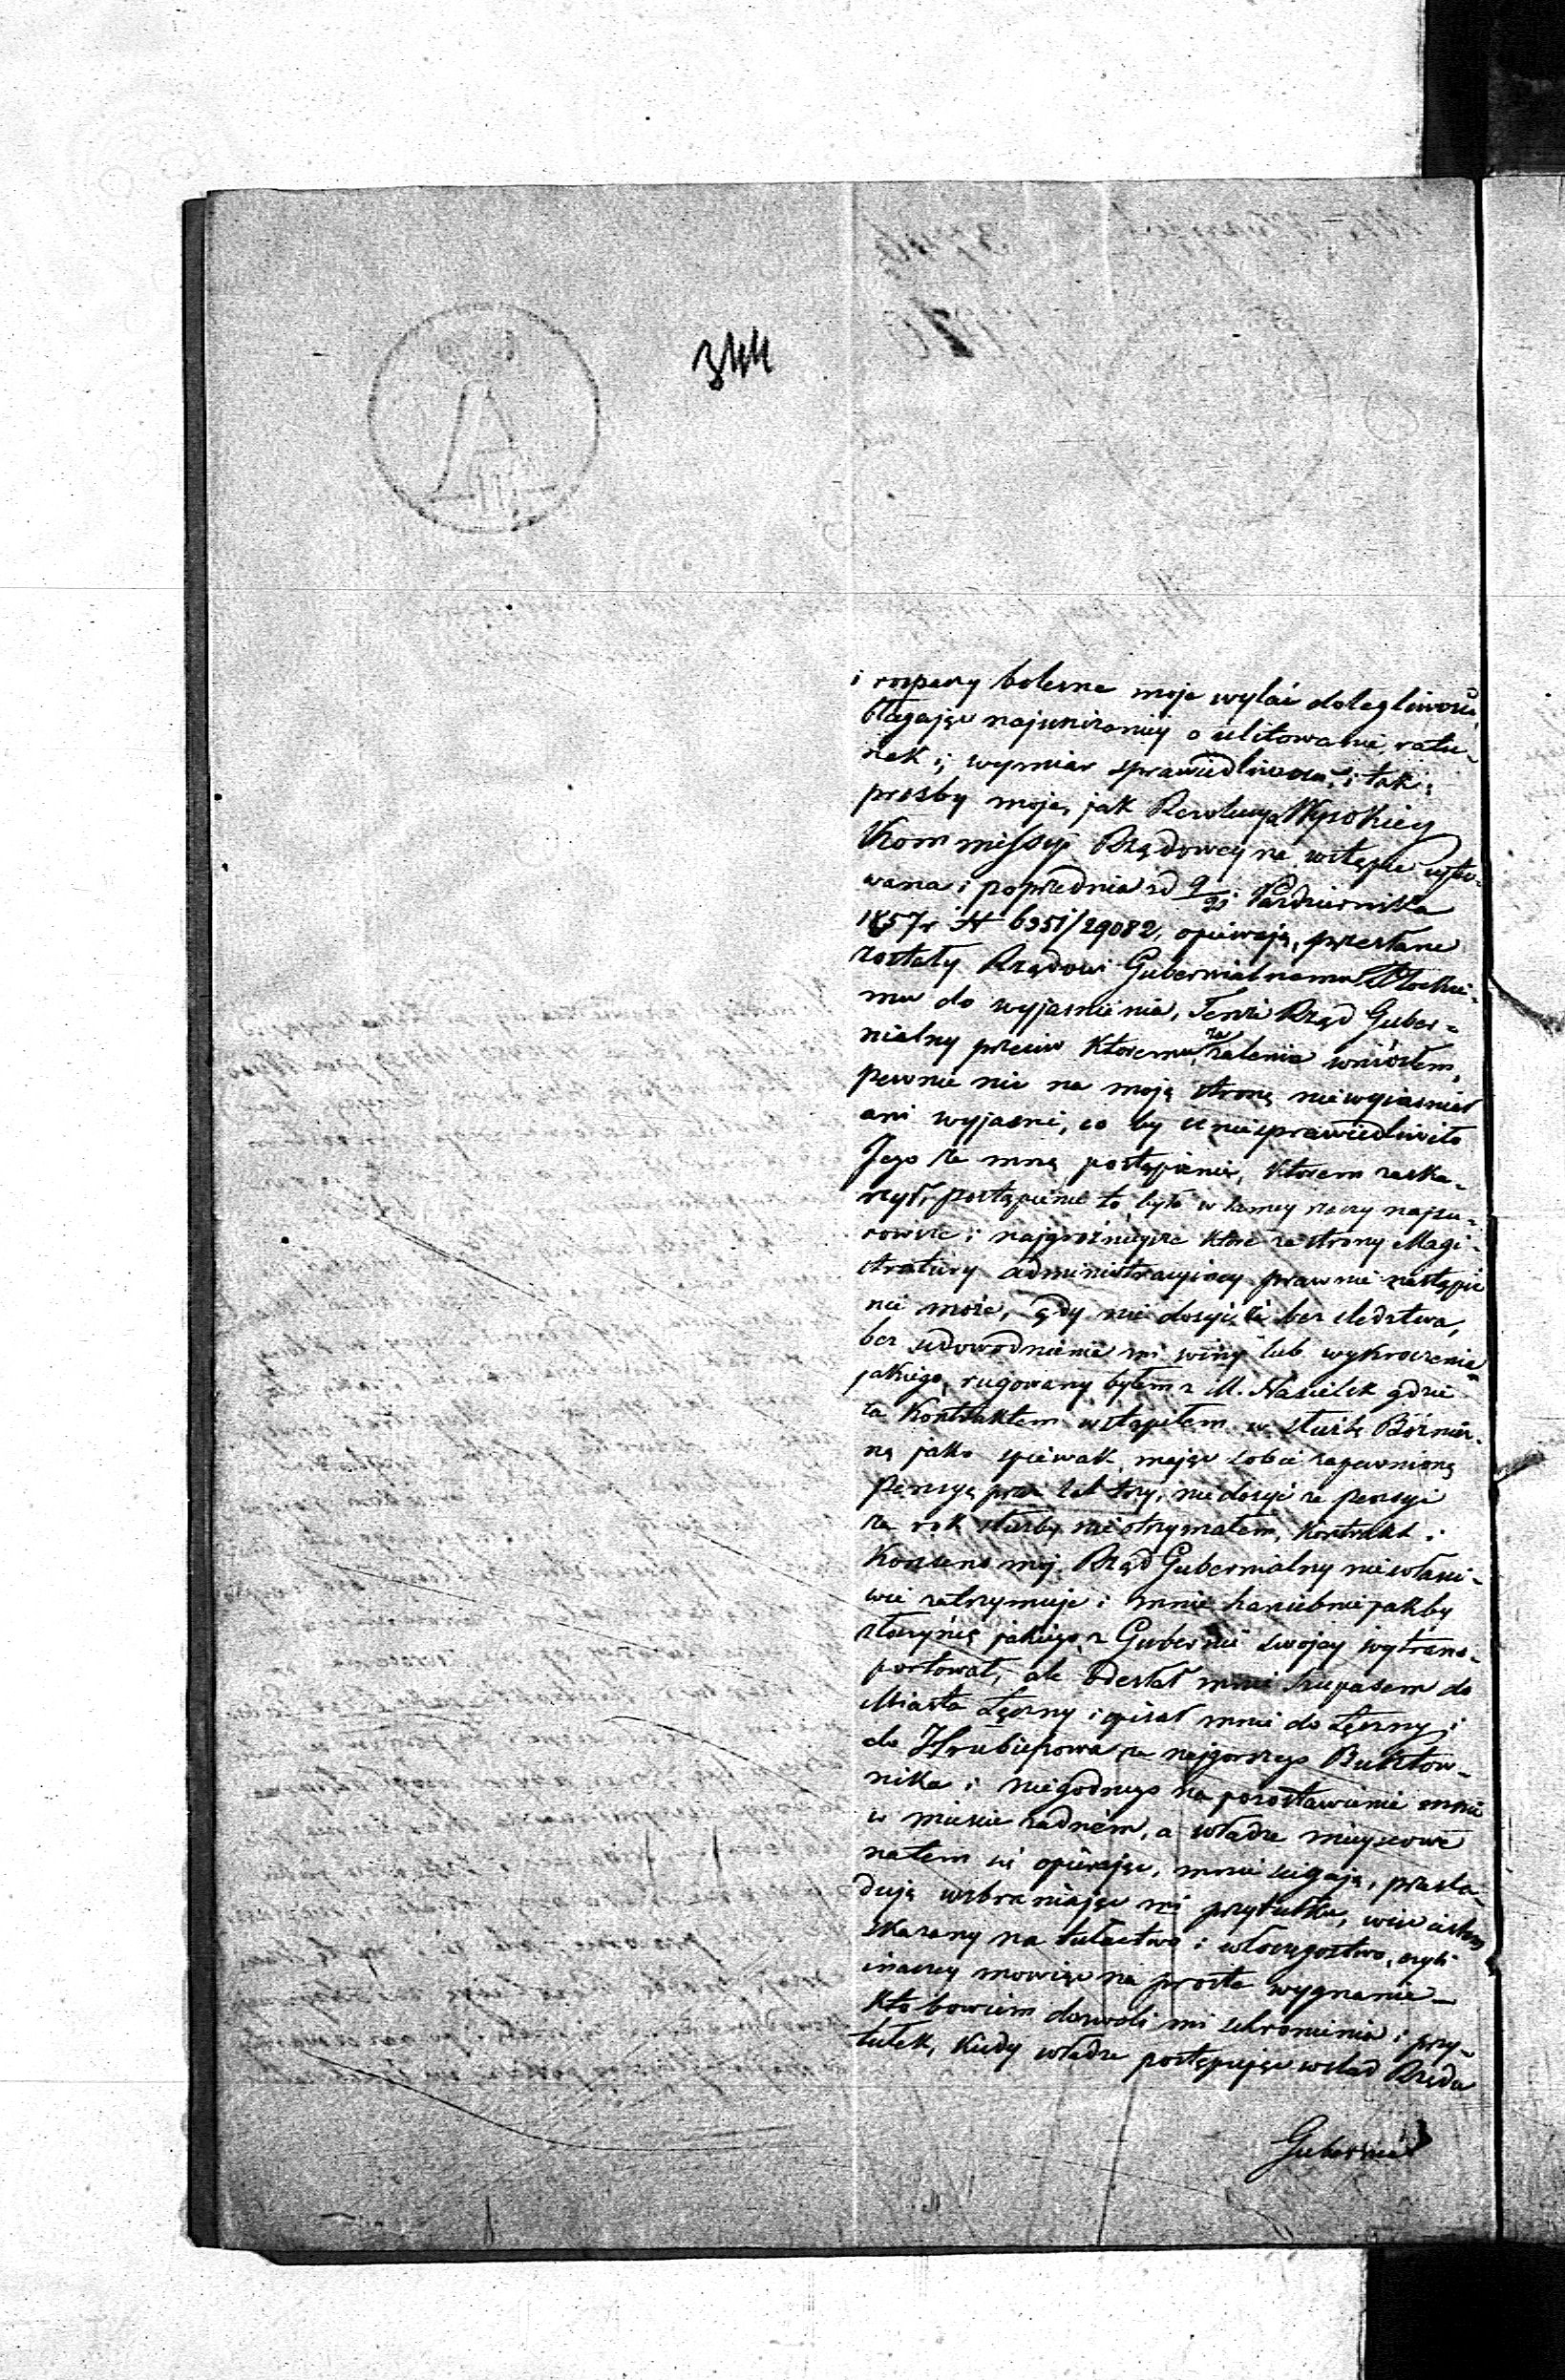 344
i rozpaczy bolesne moje wylać dolegliwości,
błagając najuniżoniey o ulitowanie, ratu-
nek i wymiar sprawiedliwości, i tak:
prośby moje, jak Rezolucya Wysokiey
Kommissyi Rządowey na wstępie cyto-
wana i poprzednia zd 9/21 Października
1857 r N 6951/29082, opiewają, przesłane
zostały Rządowi Gubernialnemu Płockie-
mu do wyjaśnienia, Tenże Rząd Guber-
nialny przeciw któremu zażalenia wniosłem,
pewnie nic na moją stronę nie wyjaśnił
ani wyjaśni, co by usprawiedliwiło
Jego ze mną postąpienie, którem zaska-
rżył, postąpienie to było w samey rzeczy najsu-
rowsze i najgroźnieysze które ze strony Magi-
stratury administracyiney prawnie nastąpić
nie może, gdy nie dosyć, że bez śledztwa,
bez udowodnienia mi winy lub wykroczenia
jakiego, rugowany byłem z M. Nasielsk gdzie
za Kontraktem wstąpiłem w służbę Bóżnicz-
ną jako śpiewak, mając sobie zapewnioną
Pensyą przez lat trzy, nie dosyć że pensyi
za rok służby nie otrzymałem, Kontrakt i
Konsens moj Rząd Gubernialny niewłaści-
wie zatrzymuje i mnie haniebnie jakby
złoczyńcę jakiego z Gubernii swojey wytrans-
portował, ale odesłał mnie szupasem do
Miasta Łęczny i opisał mnie do Łęczny i
do Hrubieszowa za najgorszego Buntow-
nika i niegodnego na pozostawienie mnie
w mieście żadném, a władze mieyscowe
na tem się opierając, mnie ścigają, prześla-
dują wzbraniając mi przytułku, więc jestem
skazany na tułactwo i włóczęgostwo, czyli
inaczey mówiąc na proste wygnanie –
Kto bowiem dozwoli mi schronienia i przy-
tułek, kiedy władze postępując wślad Rządu
Gubernial